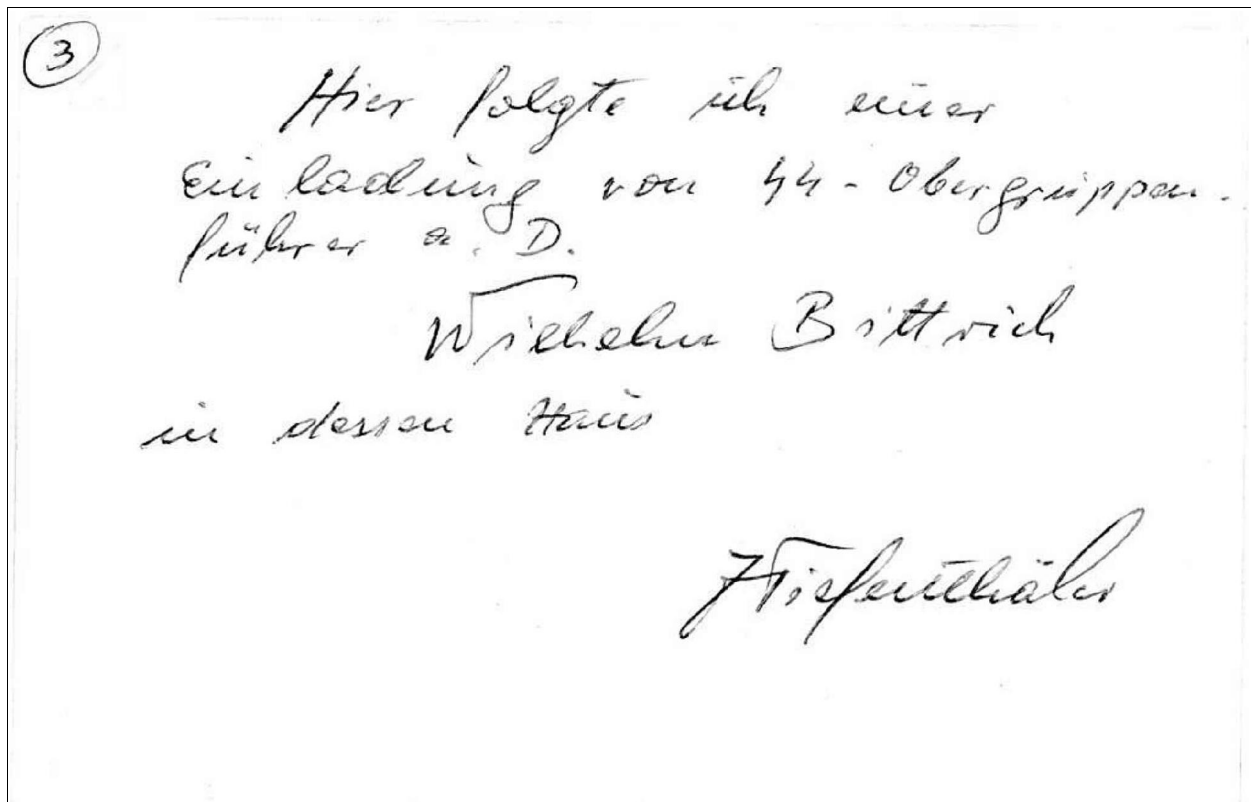 3
Hier folgte ich einer
Einladung von SS-Obergruppen-
führer a. D.
Wilhelm Bittrich
in dessen Haus